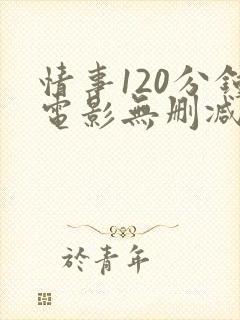 情事120分鐘
電影無刪減
於青年